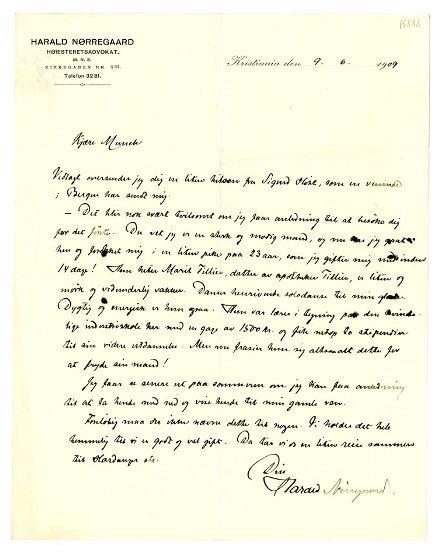 HARALD NØRREGAARD
HØIESTERETSADVOKAT.
M. N. S.
KIRKEGADEN NR.
Telefon 3281.
Kristiania den 9. 6. 1909
Kjære Munch
Vedlagt oversender jeg dig en liten hilsen fra Sigurd Høst, som en
i Bergen har sendt mig.
— Det blir nok svært tvilsomt om jeg faar anledning til at besøke dig
før det. Du vet jeg er en sterk og modig mand, og nu har jeg
hen og forlovet mig i en liten pike paa 23 aar, som jeg gifter mig med inden
14 dage! Hun heter Marit Tillier, datter av apotheker Tillier, er liten og
mørk og vidunderlig vakker. Danser henrivende solodanse til min
Dygtig og energisk er hun ogsaa. Hun var lærer i tegning paa den kvinde-
lige industriskole her med en gage av 1500 kr. og fik netop to stipendier
til sin videre utdannelse. Men nu frasier hun sig altsammen dette for
at fryde sin mand!
Jeg faar se senere ut paa sommeren om jeg kan faa anledning
til at ta hende med ned og vise hende til min gamle ven.
Foreløbig maa du ikke nævne dette til nogen. Vi holder det hele
hemmelig til vi er godt og vel gift. Da tar vi os en liten reise sammen
til Hardanger etc.
Din
Harald Nørregaard.